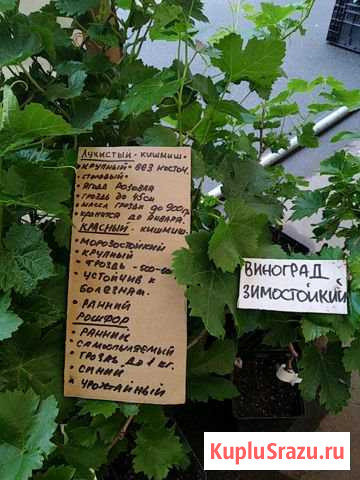 Лукистый - кишмиш
• крупный - без косточ.
• столовый
• ягода розовая
• гроздь до 45см
• масса грозди до 900гр.
• хранится до января.
Красный - кишмиш
• морозостойкий
• крупный
• гроздь - 500-
• устойчив к
болезнам.
• ранний
Рошфор
• ранний
• самоопыляемый
• гроздь до 1 кг.
• синий
• урожайный
ВИНОГРАД
ЗИМОСТОЙКИЙ
KupluSrazu.ru